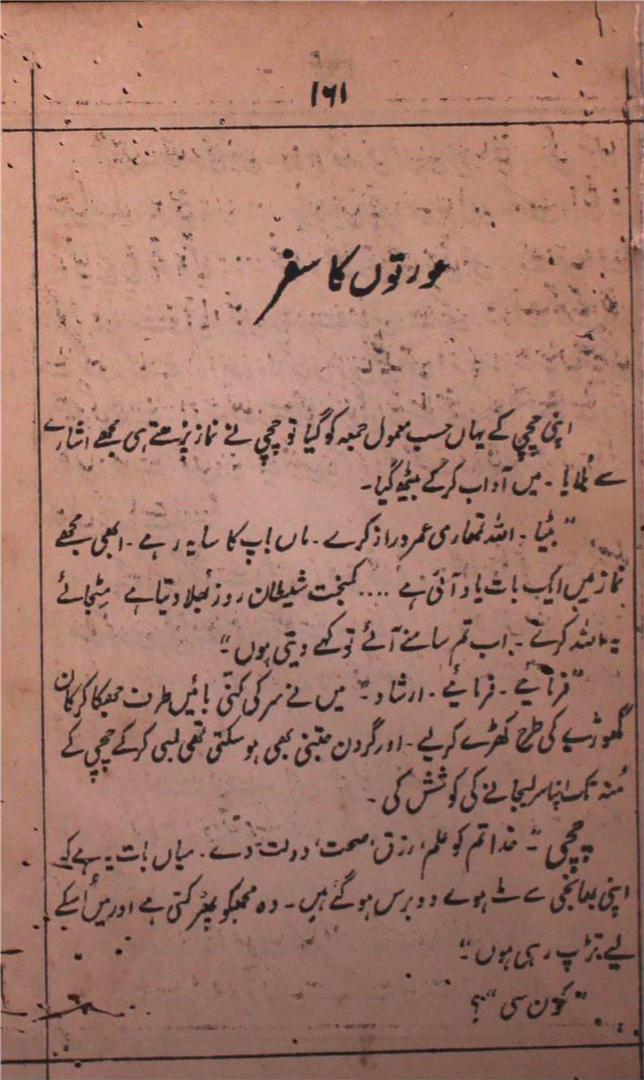 ۱۶۱
عورتوں کا سفر
اپنی چچی کے یہاں حسب معمول جمعہ کو گیا تو چچی نے نماز پڑھتے ہی مجھے اشارے
سے بُلایا ۔ میں آداب کر کے بیٹھ گیا۔
"بیٹا ۔ اللہ تمھاری عمر دراز کرے ۔ ماں باپ کا سایہ رہے ۔ ابھی مجھے
نماز میں ایک بات یاد آئی ہے .... کمبخت شیطان روز بُھلا دیتا ہے مِٹجائے
یہ اللہ کرے ۔ اب تم سامنے آئے تو کہے دیتی ہوں"
"فرمائیے ۔ فرمائیے ۔ ارشاد" میں نے سر کی کنی بائیں طرف جھکا کر کان
گھوڑے کی طرح کھڑے کر لیے ۔ اور گردن جتنی بھی ہو سکتی تھی لمبی کر کے چچی کے
مُنہ تک اپنا سر لیجانے کی کوشش کی ۔
چچی "۔ خدا تم کو علم، رزق، صحت، دولت دے ۔ میاں بات یہ ہے کہ
اپنی بھانجی سے ملے ہوے دو برس ہو گئے ہیں ۔ وہ مجھکو پھڑکتی ہے اور میں اُسکے
لیے تڑپ رہی ہوں"
"کون سی"؟